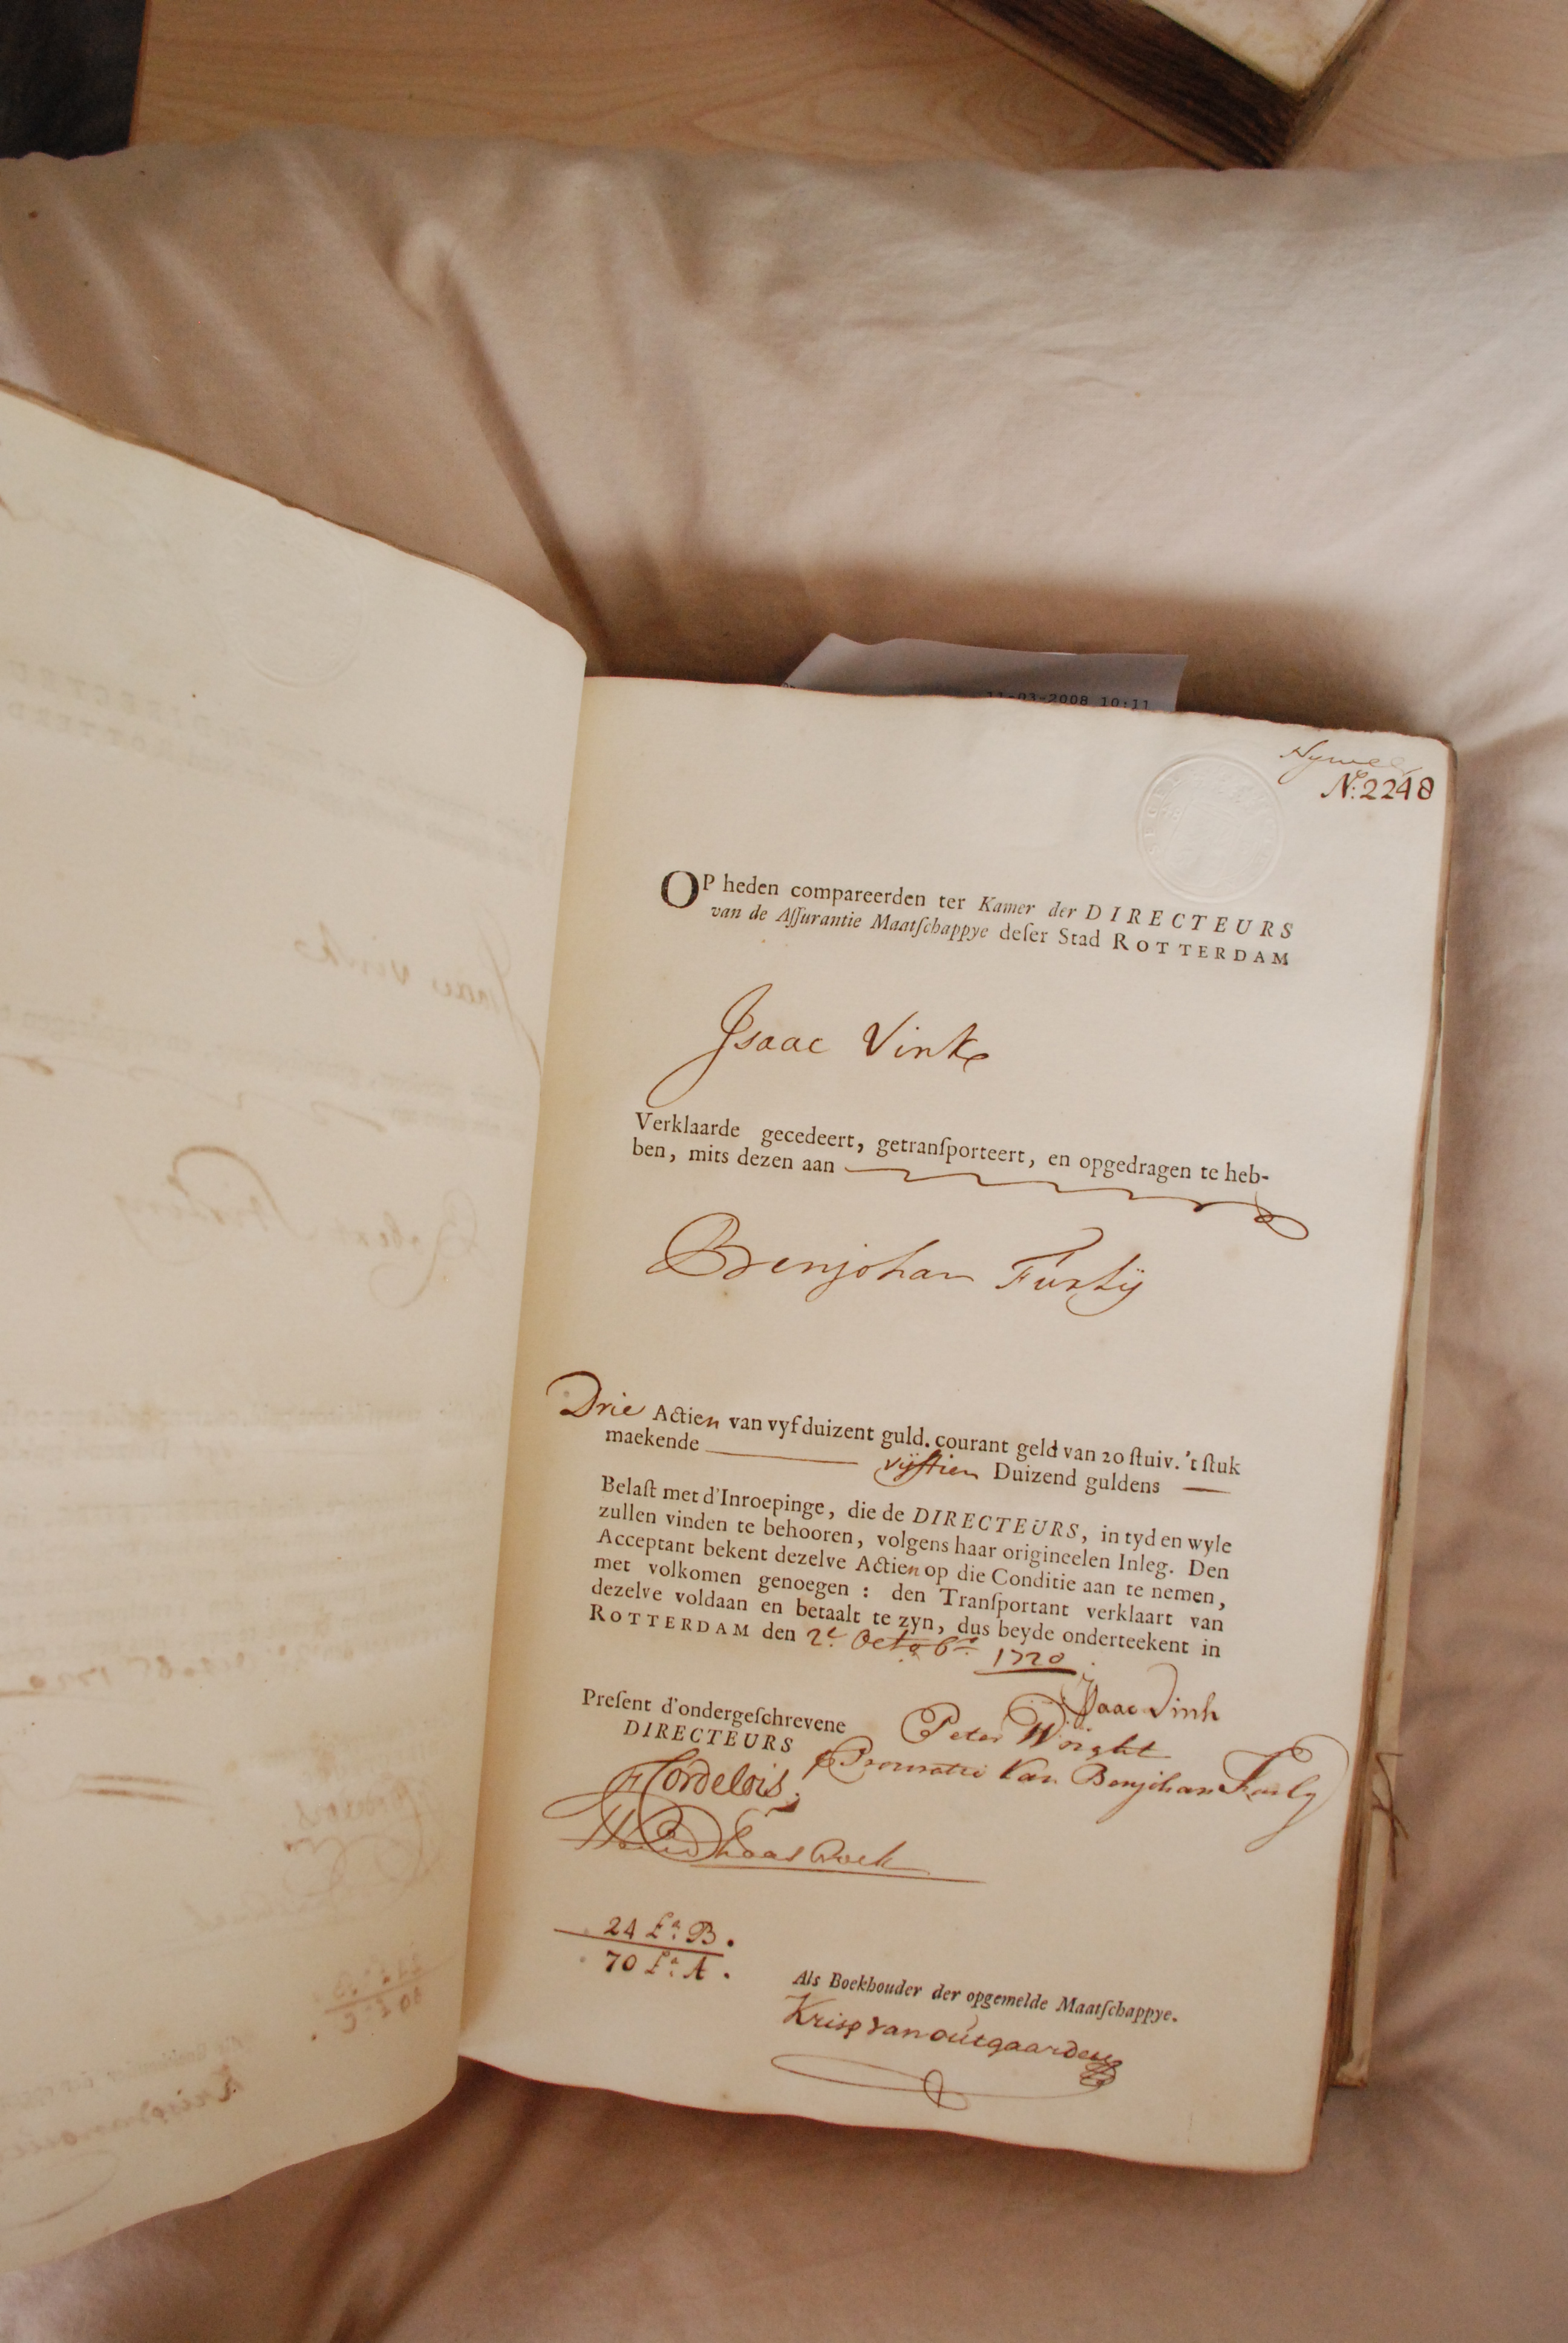 11-03-2008 10:11
N:o 2248
OP heden compareerden ter Kamer der DIRECTEURS
van de Aſſurantie Maatſchappye deſer Stad ROTTERDAM
Isaac Vink
Verklaarde gecedeert, getranſporteert, en opgedragen te heb-
ben, mits dezen aan
Benjohan Furlÿ
Drie Actien van vyfduizent guld. courant geld van 20 ſtuiv. 't ſtuk
maekende vÿftien Duizend guldens
Belaſt met d'Inroepinge, die de DIRECTEURS, in tyd en wyle
zullen vinden te behooren, volgens haar origineelen Inleg. Den
Acceptant bekent dezelve Actien op die Conditie aan te nemen,
met volkomen genoegen : den Tranſportant verklaart van
dezelve voldaan en betaalt te zyn, dus beyde onderteekent in
ROTTERDAM den 2e. Octobr. 1720
Isaac Vink
Preſent d'ondergeſchrevene
DIRECTEURS
Peter Wright
Procuratie Van Benjohan Furly
24 La. B.
70 La. A.
Als Boekhouder der opgemelde Maatſchappye.
Krisp van outgaarden